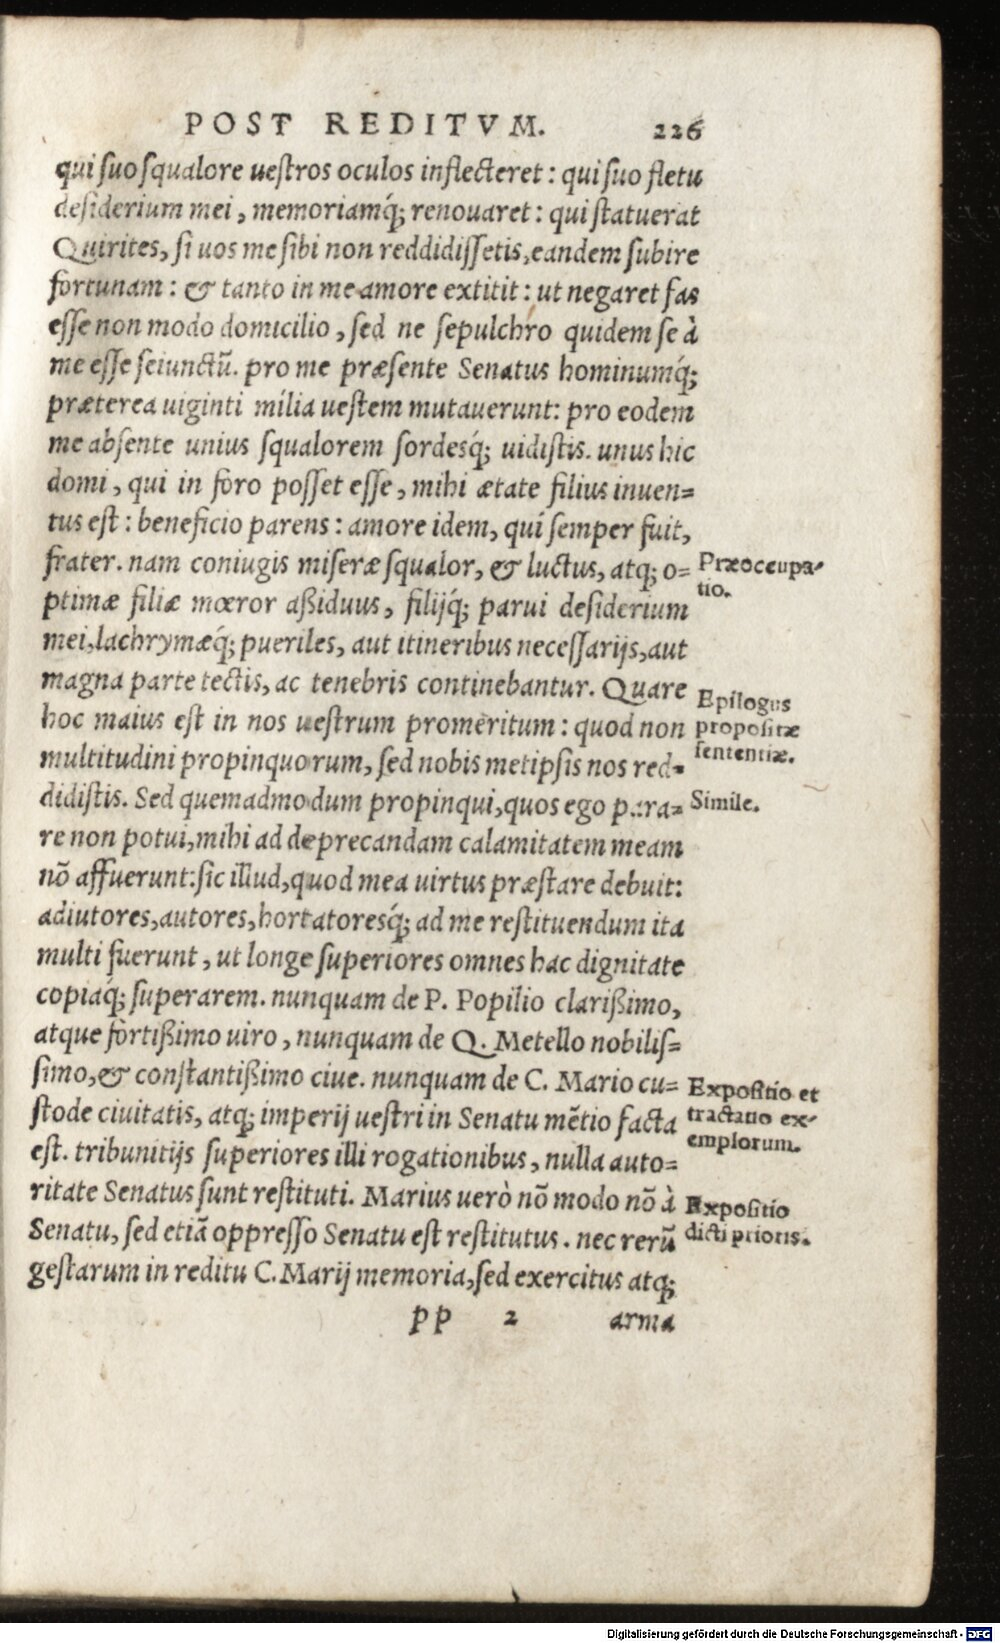 POST REDITVM. 226
qui suo squalore uestros oculos inflecteret: qui suo fletu
desiderium mei, memoriamq́; renouaret: qui statuerat
Quirites, si uos me sibi non reddidissetis, eandem subire
fortunam: & tanto in me amore extitit: ut negaret fas
esse non modo domicilio, sed ne sepulchro quidem se à
me esse seiunctũ. pro me præsente Senatus hominumq́;
præterea uiginti milia uestem mutauerunt: pro eodem
me absente unius squalorem sordesq́; uidistis. unus hic
domi, qui in foro posset esse, mihi ætate filius inuen-
tus est: beneficio parens: amore idem, qui semper fuit,
frater. nam coniugis miseræ squalor, & luctus, atq; o-
Præoccupa-
tio.
ptimæ filiæ mœror aßiduus, filijq́; parui desiderium
mei, lachrymæq́; pueriles, aut itineribus necessarijs, aut
magna parte tectis, ac tenebris continebantur. Quare
Epilogus
hoc maius est in nos uestrum promeritum: quod non
propositæ
multitudini propinquorum, sed nobis metipsis nos red-
sententiæ.
didistis. Sed quemadmodum propinqui, quos ego para-
Simile.
re non potui, mihi ad deprecandam calamitatem meam
nõ affuerunt: sic illud, quod mea uirtus præstare debuit:
adiutores, autores, hortatoresq́; ad me restituendum ita
multi fuerunt, ut longe superiores omnes hac dignitate
copiaq́; superarem. nunquam de P. Popilio clarißimo,
atque fortißimo uiro, nunquam de Q. Metello nobilis-
simo, & constantißimo ciue. nunquam de C. Mario cu-
Expositio et
stode ciuitatis, atq; imperij uestri in Senatu mẽtio facta
tractatio ex-
emplorum.
est. tribunitijs superiores illi rogationibus, nulla auto-
ritate Senatus sunt restituti. Marius uerò nõ modo nõ à
Expositio
Senatu, sed etiã oppresso Senatu est restitutus. nec rerũ
dicti prioris.
gestarum in reditu C. Marij memoria, sed exercitus atq;
pp 2 arma
Digitalisierung gefördert durch die Deutsche Forschungsgemeinschaft - DFG